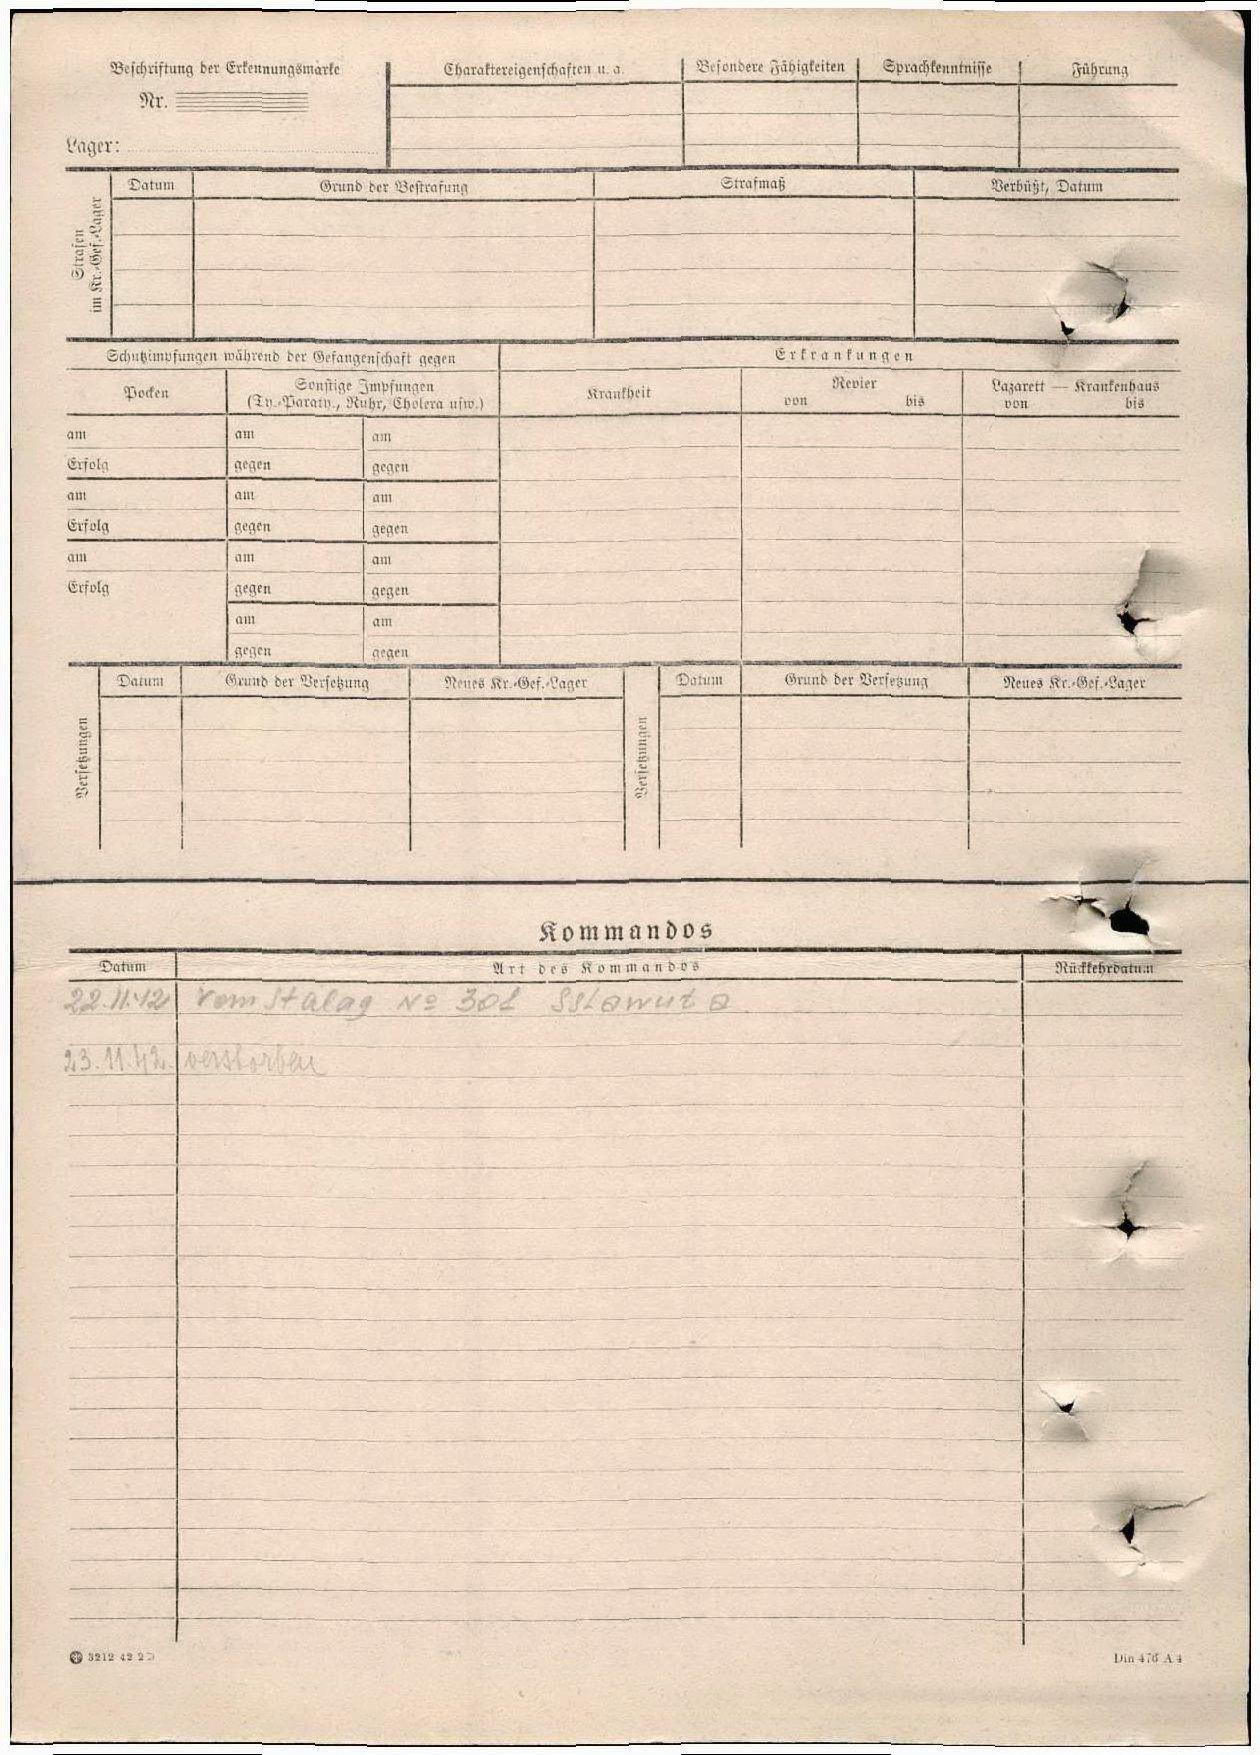 Beschriftung der Erkennungsmarke
Nr.
Lager:
Charaktereigenschaften u. a.
Besondere Fähigkeiten
Sprachkenntnisse
Führung
Strafen
im Kr.-Gef.-Lager
Datum
Grund der Bestrafung
Strafmaß
Verbüßt, Datum
Schutzimpfungen während der Gefangenschaft gegen
Erkrankungen
Pocken
Sonstige Impfungen
(Ty.-Paraty., Ruhr, Cholera usw.)
Krankheit
Revier
von bis
Lazarett — Krankenhaus
von bis
am am am
Erfolg gegen gegen
am am am
Erfolg gegen gegen
am am am
Erfolg gegen gegen
am am
gegen gegen
Versetzungen
Datum Grund der Versetzung Neues Kr.-Gef.-Lager
Versetzungen
Datum Grund der Versetzung Neues Kr.-Gef.-Lager
Kommandos
Datum Art des Kommandos Rückkehrdatum
22.11.42 vom Stalag No 301 Sslawuta
23.11.42. verstorben
3212 42 2
Din 476 A 4